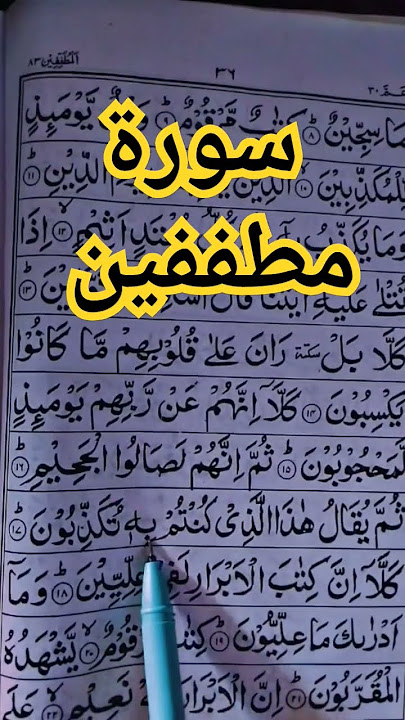 المطففين ٨٣
٣٦
عم ٣٠
سورة
مطففين
مَا سِجِّيْنٌ ۝٨ كِتٰبٌ مَّرْقُوْمٌ ۝٩ يَّوْمَىِٕذٍ
لِّلْمُكَذِّبِيْنَ ۝١٠ الَّذِيْنَ الدِّيْنِ ۝١١
وَمَا يُكَذِّبُ اَثِيْمٍ ۝١٢ اِذَا
تُتْلٰى عَلَيْهِ اٰيٰتُنَا قَالَ ۝١٣
كَلَّا بَلْ سكتة رَانَ عَلٰى قُلُوْبِهِمْ مَّا كَانُوْا
يَكْسِبُوْنَ ۝١٤ كَلَّآ اِنَّهُمْ عَنْ رَّبِّهِمْ يَوْمَىِٕذٍ
لَّمَحْجُوْبُوْنَ ۝١٥ ثُمَّ اِنَّهُمْ لَصَالُوا الْجَحِيْمِ ۝١٦
ثُمَّ يُقَالُ هٰذَا الَّذِىْ كُنْتُمْ بِهٖ تُكَذِّبُوْنَ ۝١٧
كَلَّآ اِنَّ كِتٰبَ الْاَبْرَارِ لَفِىْ عِلِّيِّيْنَ ۝١٨ وَمَآ
اَدْرٰىكَ مَا عِلِّيُّوْنَ ۝١٩ كِتٰبٌ مَّرْقُوْمٌ ۝٢٠ يَّشْهَدُهُ
الْمُقَرَّبُوْنَ ۝٢١ اِنَّ الْاَبْرَارَ لَفِىْ نَعِيْمٍ ۝٢٢ عَلَى